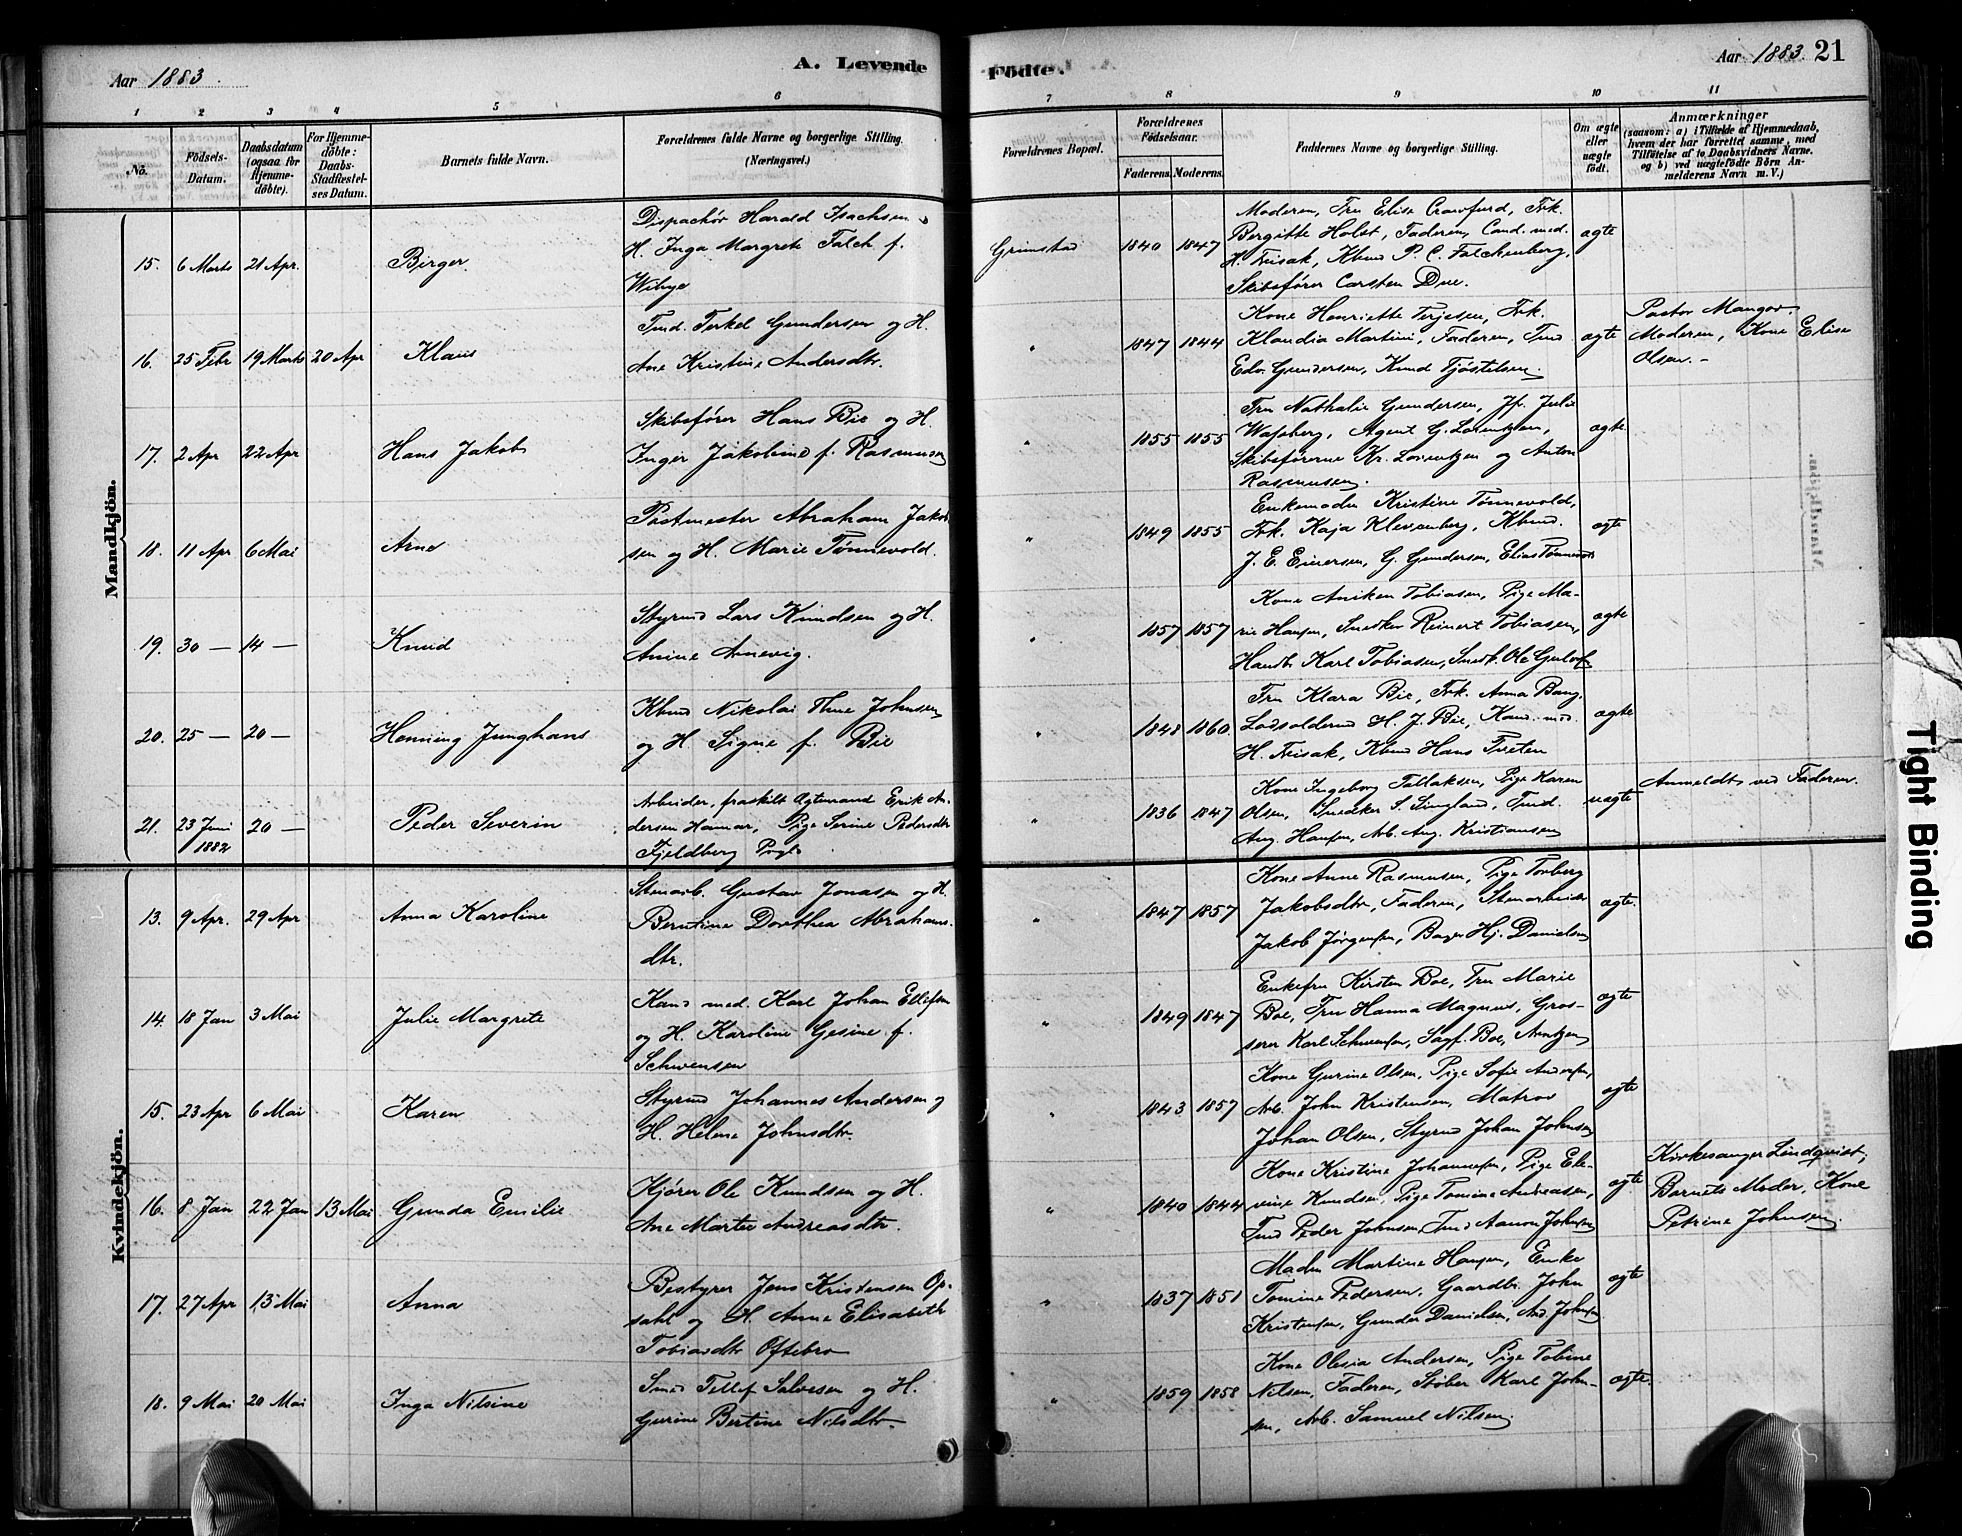 Aar 1883.
A. Levende
Födte.
Aar 1883. 21
1 2 3 4 5 6 7 8 9 10 11
No.
Födsels-
Datum.
Daabsdatum
(ogsaa for
Hjemme-
döbte).
For Hjemme-
döbte:
Daabs-
Stadfæstel-
ses Datum.
Barnets fulde Navn.
Forældrenes fulde Navne og borgerlige Stilling.
(Næringsvei.)
Forældrenes Bopæl.
Forældrenes
Födselsaar.
Faderens. Moderens.
Faddernes Navne og borgerlige Stilling.
Om ægte
eller
uægte
födt.
Anmærkninger
(saasom: a) i Tilfælde af Hjemmedaab,
hvem der har forrettet samme, med
Tilföielse af to Daabsvidners Navne.
og b) ved uægtefödte Börn An-
melderens Navn m. V.)
Mandkjön.
15. 6 Marts 21 Apr. Birger
Dispachör Harald Isachsen &
H. Inga Margrete Falch f.
Wibye
Grimstad 1840 1847
Moderen, Fru Elise Crawfurd, Frk.
Bergitte Holst, Faderen, Cand. med.
H. Frisak, Kbmd P. C. Falchenberg,
Skibsfører Carsten Due.
ægte
16. 25 Febr 19 Marts 20 Apr Klaus
Tmd. Terkel Gundersen og H.
Ane Kristine Andersdtr.
" 1847 1844
Kone Henriette Terjesen, Frk.
Klandia Martini, Faderen, Tmd
Edv. Gundersen, Knud Tjøstelsen.
ægte
Pastor Mangor.
Moderen, Kone Elise
Olsen. -
17. 2 Apr 22 Apr Hans Jakob
Skibsfører Hans Bie og H.
Inger Jakobine f. Rasmusen
" 1855 1855
Fru Nathalie Gundersen, Jf. Julie
Agent G. Lorentzen,
Skibsførerne Kr. Lorentzen og Anton
Rasmusen.
ægte
18. 11 Apr 6 Mai Arne
Postmester Abraham Jakob
sen og H. Marie Tønnevold.
" 1849 1855
Enkemadm Kristine Tønnevold,
Frk. Kaja Klevenberg, Kbmd.
J. E. Eiversen, G. Gundersen, Elias Tønnevold
ægte
19. 30 — 14 — Knud
Styrmd Lars Knudsen og H.
Anine Arnevig.
" 1857 1857
Kone Aniken Tobiasen, Pige Ma-
rie Hansen, Snedker Reinert Tobiasen,
Handb. Karl Tobiasen, Snedk. Ole
ægte
20. 25 — 20 — Henning Junghans
Kbmd Nikolai Thue Johnsen
og H. Signe f. Bie
" 1848 1860
Fru Klara Bie, Frk. Anna Bang,
Lodsoldermd H. J. Bie, Kand. med.
H. Frisak, Kbmd Hans Tveten
ægte
21. 23 Juni 20 — Peder Severin
1882
Arbeider, fraskilt Ægtemand Erik An-
dersen Hamar, Pige Serine Pedersdtr
Fjeldberg
" 1836 1847
Kone Ingeborg Tallaksen, Pige Karen
Olsen, Snedker S. Lingland, Tmd.
Aug. Hansen, Arb. Aug. Kristiansen
uægte
Anmeldt ved Faderen.
Kvindekjön.
13. 9 Apr. 29 Apr Anna Karoline
Stenarb. Gustav Jonasen og H.
Berntine Dorothea Abrahams-
dtr.
" 1847 1857
Kone Anne Rasmusen, Pige Torberg
Jakobsdtr, Faderen, Stenarbeider
Jakob Jørgensen, Bager Hj. Danielsen
ægte.
14. 18 Jan 3 Mai Julie Margrete
Kand med. Karl Johan Ellefsen
og H. Karoline Gesine f.
Schwensen
" 1849 1847
Enkefru Kirsten Boe, Fru Marie
Boe, Fru Hanna Magnus, Gros-
serer Karl Schwensen, Sagf. Boe, Arntzen
ægte
15. 23 Apr 6 Mai Karen
Styrmd Johannes Andersen og
H. Helene Johnsdtr.
" 1843 1857
Kone Gurine Olsen, Pige Sofie Andersen,
Arb. John Kristensen, Matros
Johan Olsen, Styrmd Johan Johnsen
ægte
16. 8 Jan 22 Jan 13 Mai Gunda Emilie
Kjører Ole Knudsen og H.
Ane Marte Andreasdtr.
" 1840 1844
Kone Kristine Johannesen, Pige Ele-
vine Knudsen, Pige Tomine Andreasen,
Tmd Peder Johnsen, Tmd Aanon Johnsen
ægte
Kirkesanger Lindquist,
Barnets Moder, Kone
Petrine Johnsen.
17. 27 Apr 13 Mai Anna
Bestyrer Jens Kristensen Op-
sahl og H. Anne Elisabeth
Tobiasdtr Oftebro
" 1837 1851
Madm Martine Hansen, Enke
Tomine Pedersen, Gaardbr. John
Kristensen, Gunder Danielsen, And Johnsen
ægte
18. 9 Mai 20 Mai Inga Nilsine
Smed Tellef Salvesen og H.
Gurine Bertine Nilsdtr
" 1859 1858
Kone Olesia Andersen, Pige Tobine
Nilsen, Faderen, Støber Karl John-
sen, Arb. Samuel Nilsen.
ægte.
Tight Binding